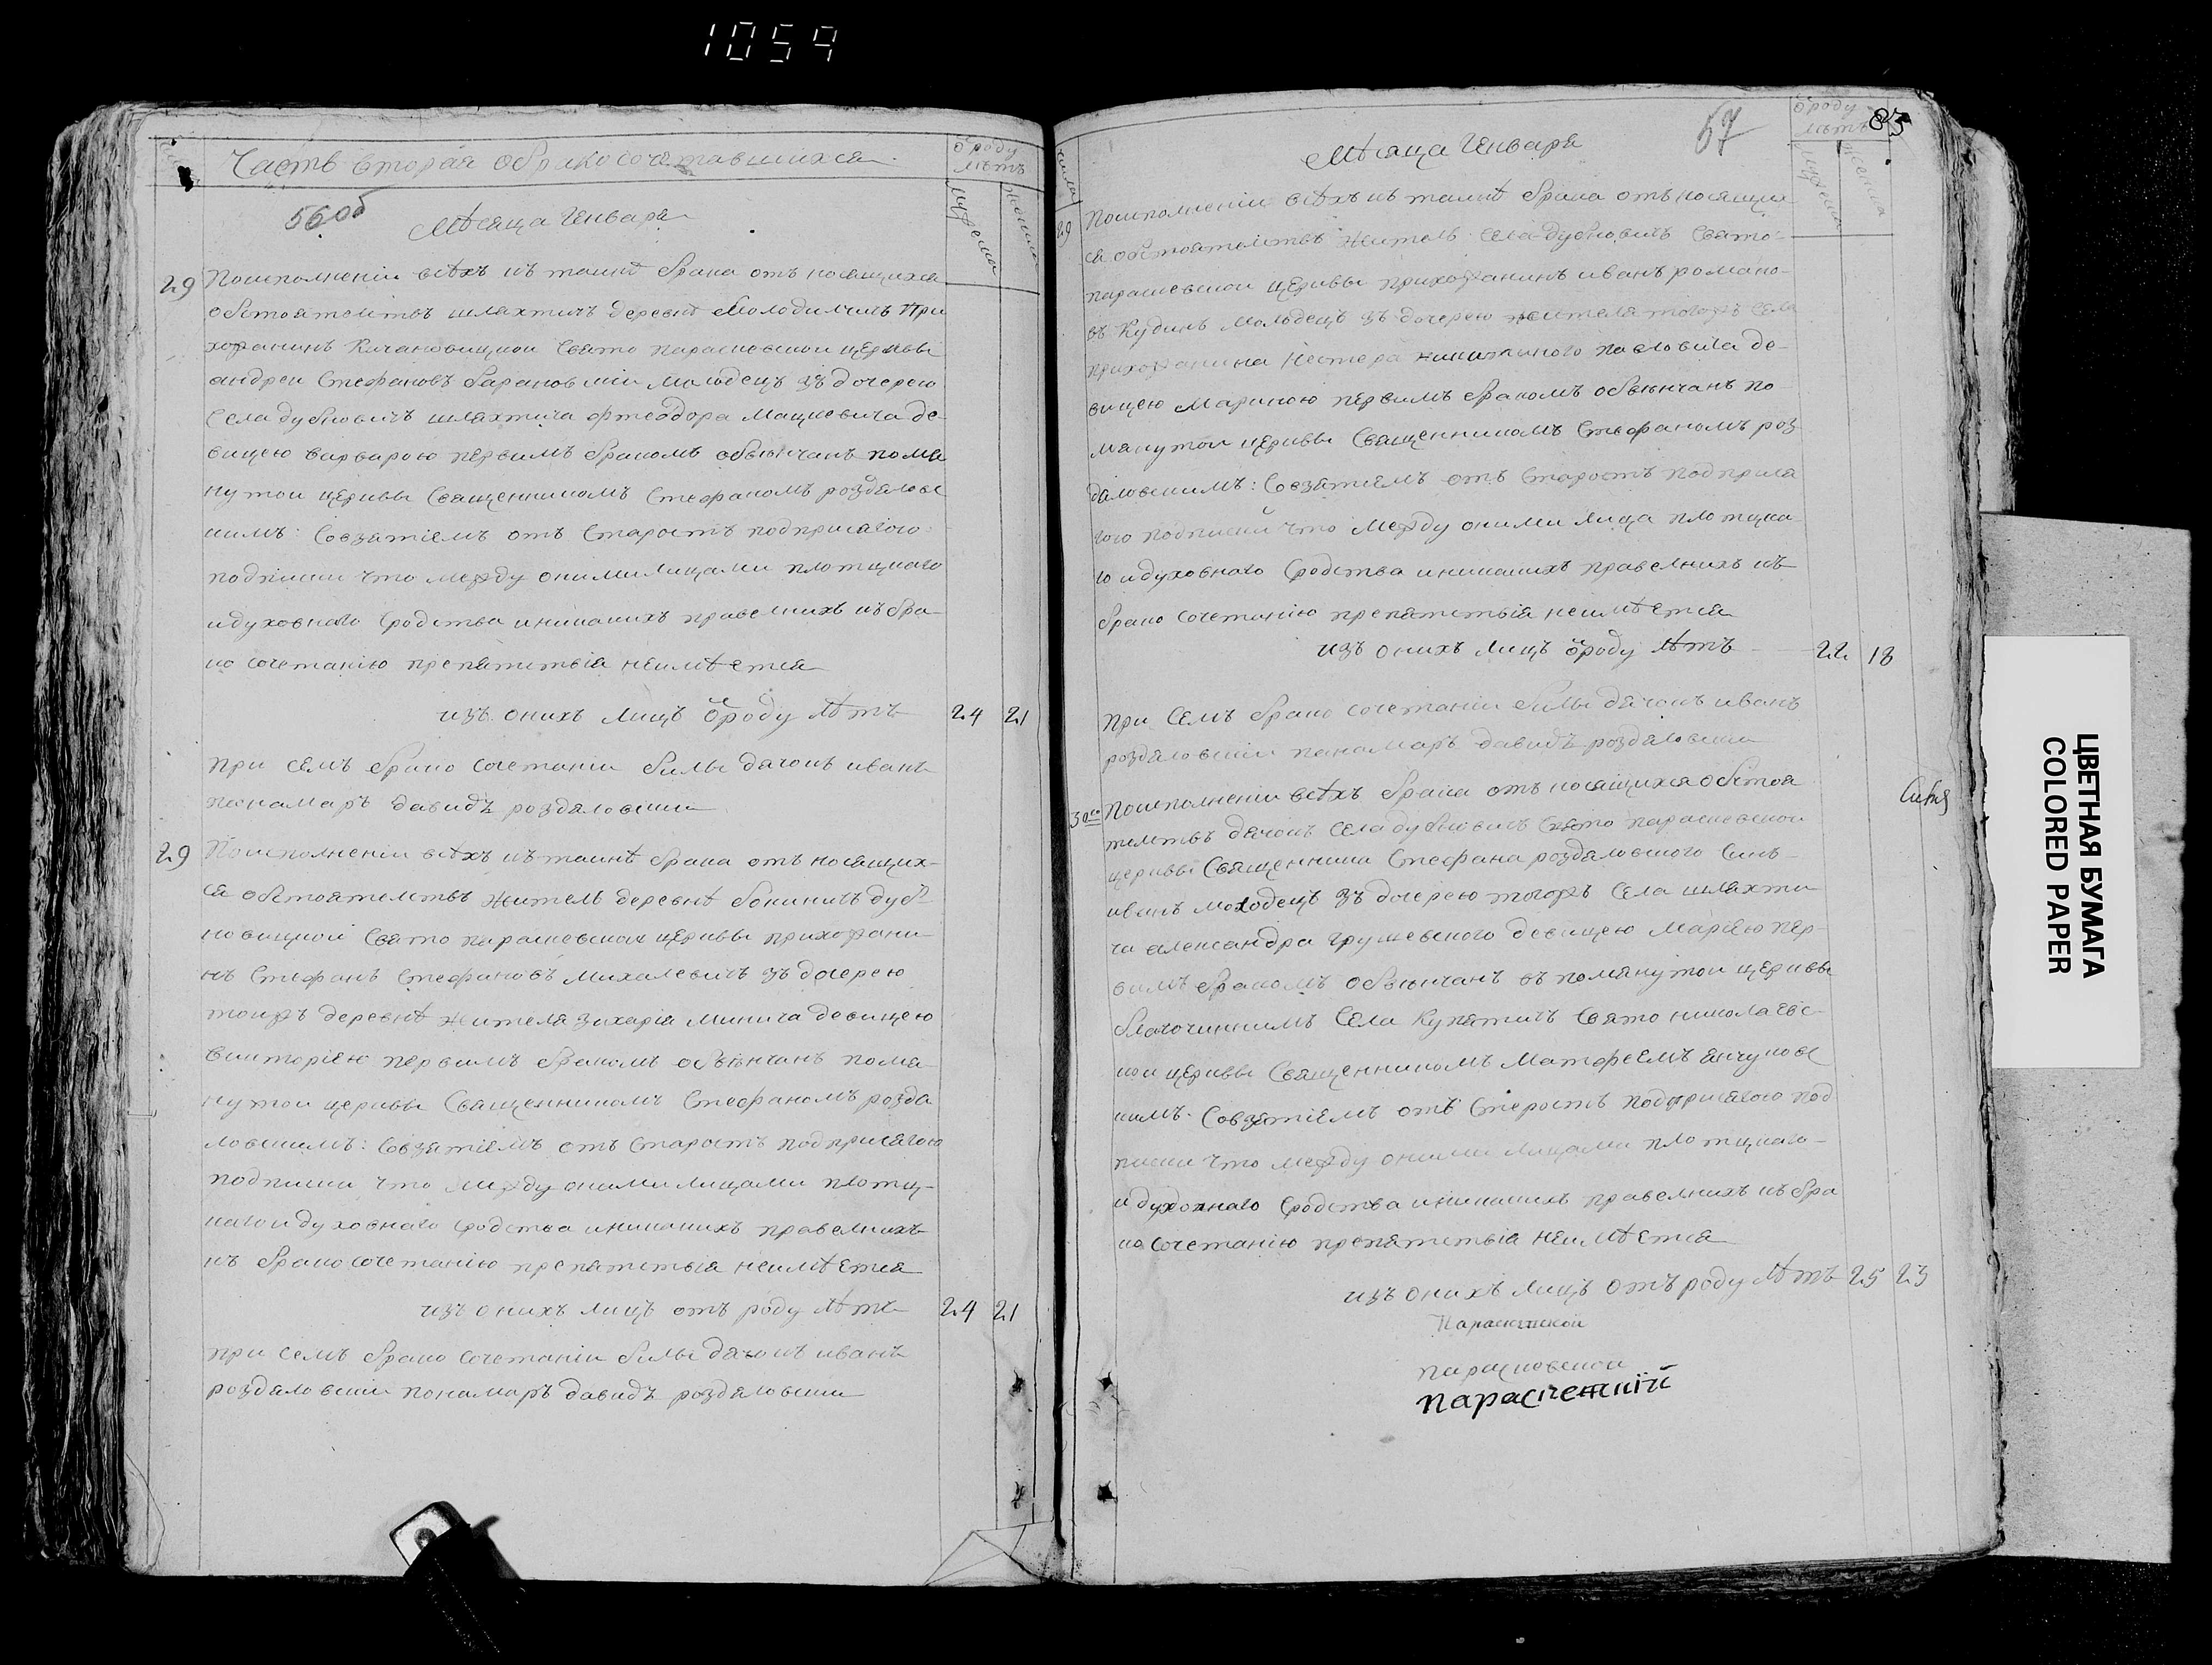 1059
Часть вторая обракосочетавшихся
ѿ роду
лѣтъ
мужеска
женска
56об
Мѣсяца Генваря
29
Поисполненіи всѣхъ къ таинѣ брака относящихся
обстоятелствъ шляхтичъ деревнѣ Молодилчичъ при
хожанинъ свято параскевской церквы
андрей Стефановъ барановскій молодецъ зъ дочерею
Села дубновичъ шляхтича фтеодора Мацкевича де-
вицею варварою первимъ бракомъ обвѣнчанъ помя
нутой церквы Священникомъ Стефаномъ роздяловс
кимъ: Совзятіемъ отъ Старостъ подприсягою
подписки что между оними лицами плотцкаго
идуховнаго Сродства иникакихъ правелнихъ къ бра-
ко сочетанію препятствія неимѣется
изъ онихъ лицъ ѿроду лѣтъ 24 21
при семъ брако сочетаніи били дячокъ иванъ
пономаръ давидъ роздяловскии
29
Поисполненіи всѣхъ къ таинѣ брака относящих-
ся обстоятелствъ жителъ деревнѣ бокиничъ дуб-
новицкой свято параскевской церквы прихожани
нъ Стефанъ Стефановъ михалевичъ зъ дочерею
тоижъ деревнѣ жителя захарія минича девицею
викторіею первимъ бракомъ обвѣнчанъ помя-
нутой церквы Священникомъ Стефаномъ розда
ловскимъ: Совзятіемъ отъ Старостъ подприсягою
подписки что между оними лицами плотц-
каго идуховнаго сродства иникакихъ правелнихъ
къ брако сочетанію препятствія неимѣется
изъ онихъ лицъ отъ роду лѣтъ 24 21
при семъ брако сочетаніи били дячокъ иванъ
роздяловскіи пономаръ давидъ роздяловскии
Мѣсяца Генваря
57
83
ѿ роду
лѣтъ
мужеска
женска
числа
29
Поисполненіи всѣхъ къ таинѣ брака относящих
ся обстоятелствъ жителъ Села дубновичъ Свято-
параскевской церквы прихожанинъ иванъ романо-
въ Кудинъ молодецъ зъ дочерею жителя тогожъ села
прихожанина нестера павловича де-
вицею Мариною первимъ бракомъ обвѣнчанъ по-
мянутой церквы Священникомъ Стефаномъ роз
даловскимъ: Совзятіемъ отъ Старостъ подприся
гою подписки что между оними лица плотцка
го идуховнаго Сродства иникакихъ правелнихъ къ
брако сочетанію препятствія неимѣется
изъ онихъ лицъ ѿроду лѣтъ 22 18
при Семъ брако сочетаніи били дячокъ иванъ
роздяловскіи панамаръ давидъ роздяловскии
30го
Поисполненіи всѣхъ брака относящихся обстоя
телствъ дячокъ Села дубновичъ Свято параскевской
церквы Священника Стефана роздяловского Синъ
иванъ молодецъ зъ дочерею тогожъ Села шляхти
ча александра грушевского девицею Маріею пер-
вимъ бракомъ обвѣнчанъ въ помянутой церквы
благочиннимъ Села Купятичъ Свято николаевс-
кой церквы Священникомъ Матфеемъ янчуковс
кимъ. Совзятіемъ отъ Старостъ подприсягою под
писки что между оними лицами плотцкаго-
идуховнаго Сродства иникакихъ правелнихъ къ бра
ко сочетанію препятствія неимѣется
изъ онихъ лицъ отъ роду лѣтъ 25 23
ЦВЕТНАЯ БУМАГА
COLORED PAPER